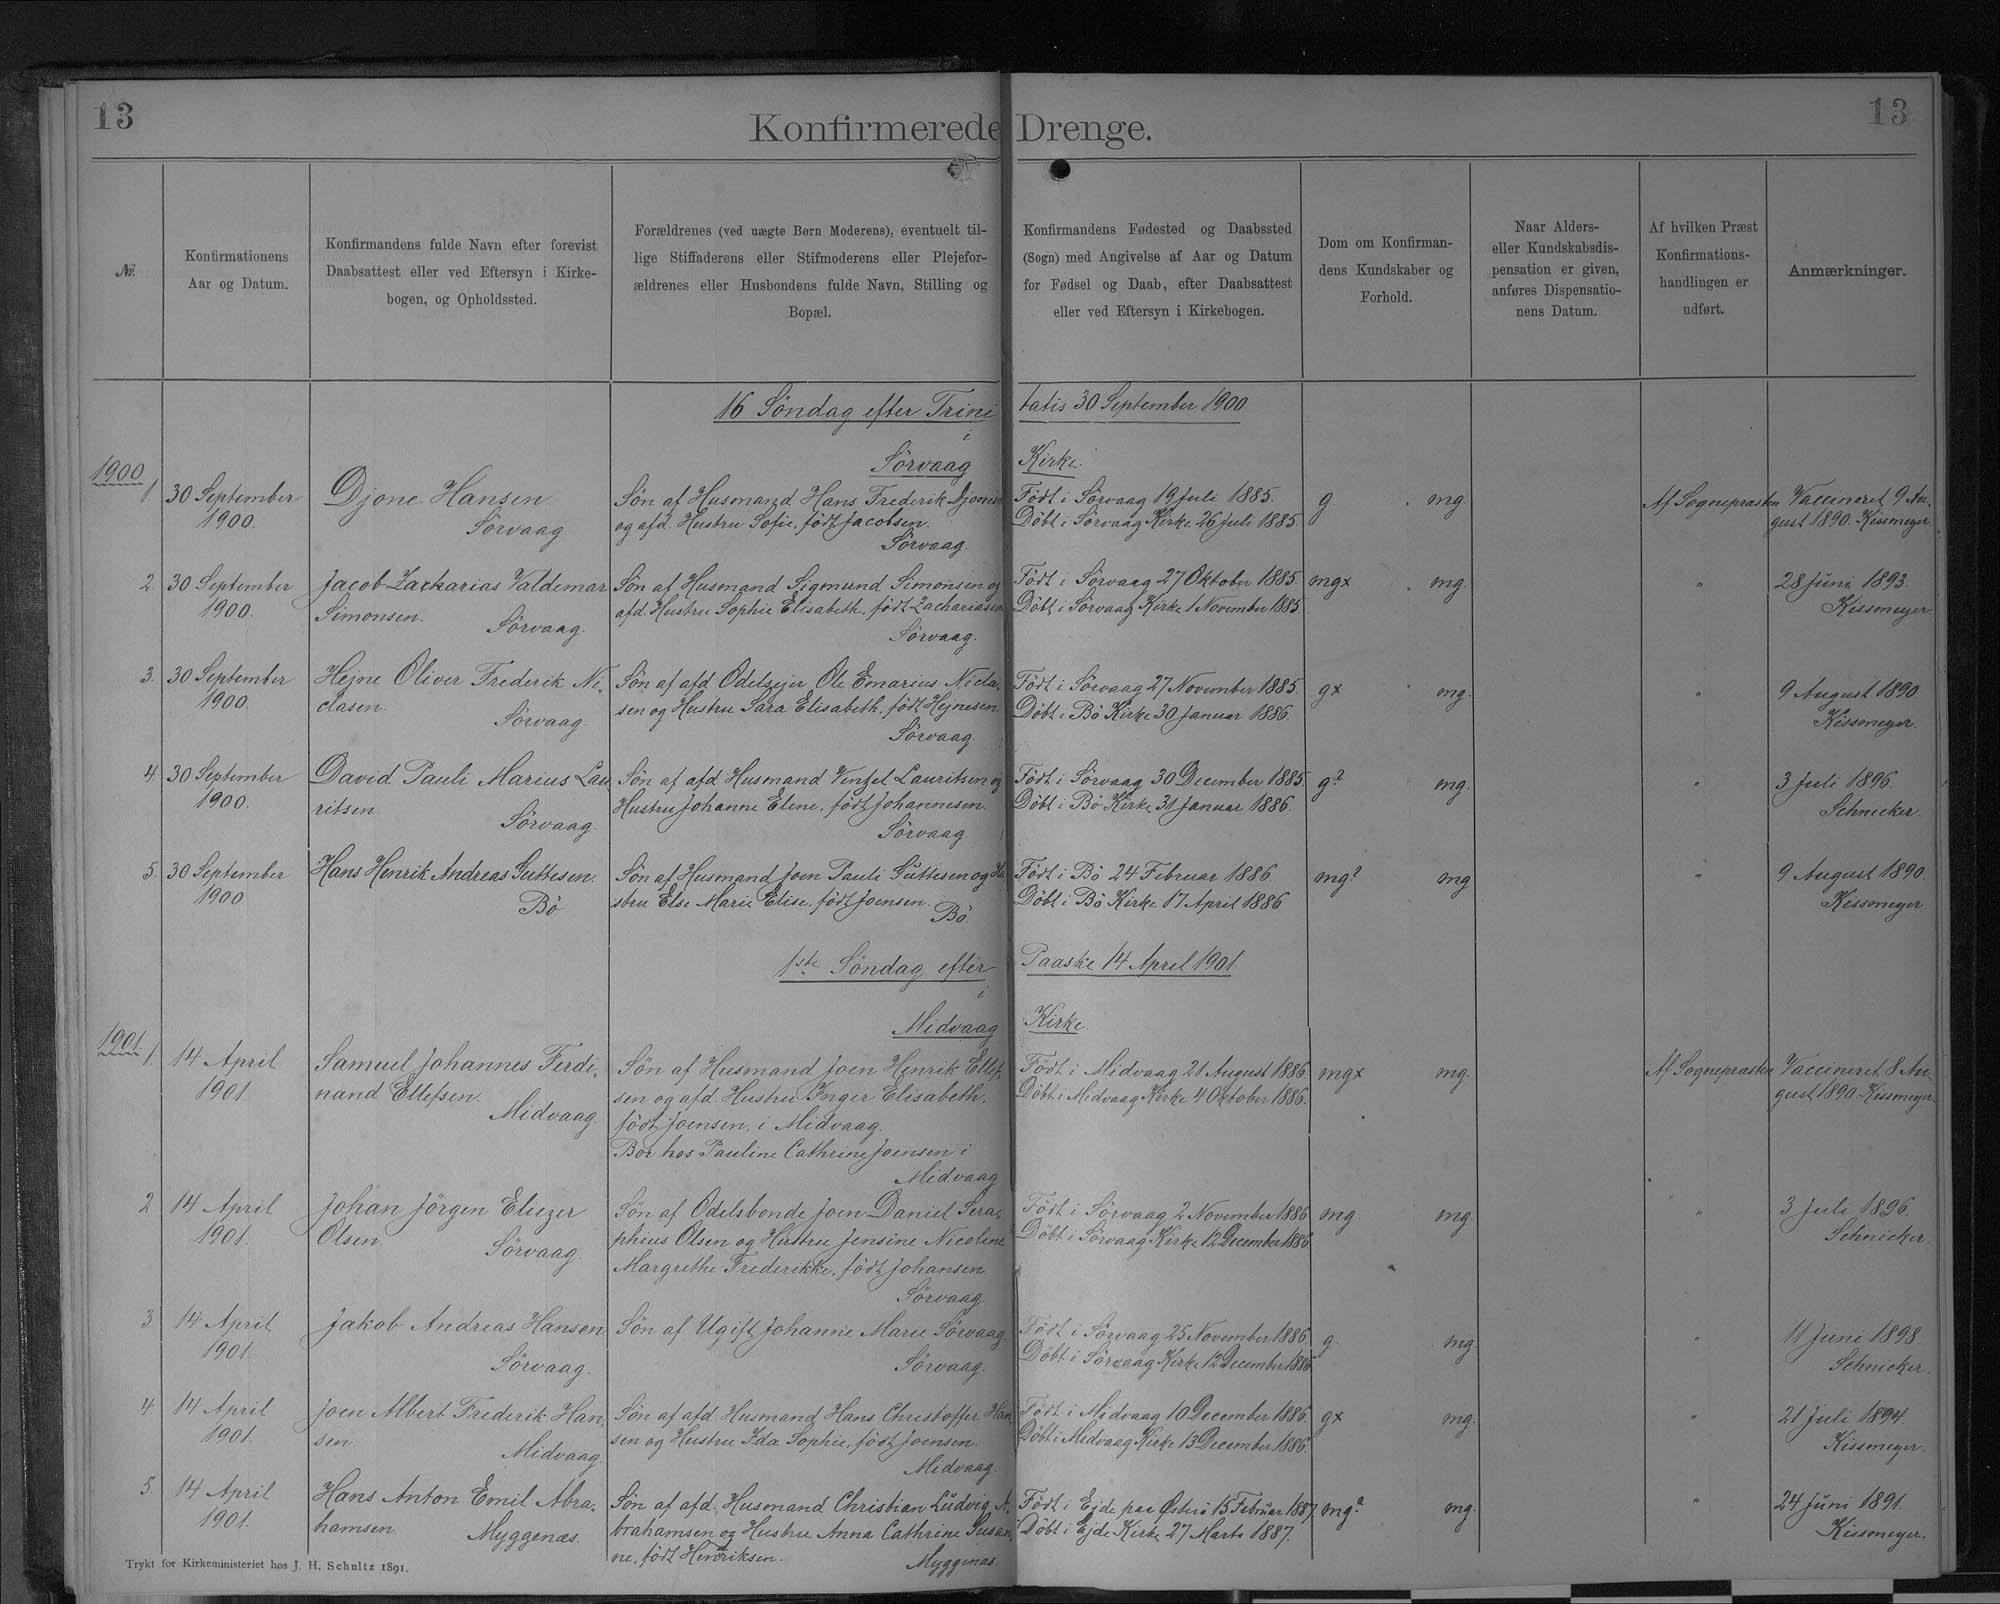 13
13
Konfirmerede Drenge.
№.
Konfirmationens
Aar og Datum.
Konfirmandens fulde Navn efter forevist
Daabsattest eller ved Eftersyn i Kirke-
bogen, og Opholdssted.
Forældrenes (ved uægte Børn Moderens), eventuelt til-
lige Stiffaderens eller Stifmoderens eller Plejefor-
ældrenes eller Husbondens fulde Navn, Stilling og
Bopæl.
Konfirmandens Fødested og Daabssted
(Sogn) med Angivelse af Aar og Datum
for Fødsel og Daab, efter Daabsattest
eller ved Eftersyn i Kirkebogen.
Dom om Konfirman-
dens Kundskaber og
Forhold.
Naar Alders-
eller Kundskabsdis-
pensation er given,
anføres Dispensatio-
nens Datum.
Af hvilken Præst
Konfirmations-
handlingen er
udført.
Anmærkninger.
16 Söndag efter Trinitatis 30 September 1900
i
Sörvaag Kirke.
1900
1.
30 September
1900.
Djone Hansen
Sörvaag
Sön af Husmand Hans Frederik Djonesen
og afd. Hustru Sofie, födt Jacobsen.
Sörvaag.
Födt i Sörvaag 19 Juli 1885.
Döbt i Sörvaag Kirke 26 Juli 1885.
g
mg
Af Sognepræsten
Vaccineret 9 Au-
gust 1890. Kissmeyer.
2.
30 September
1900.
Jacob Zackarias Valdemar
Simonsen.
Sörvaag.
Sön af Husmand Sigmund Simonsen og
afd. Hustru Sophie Elisabeth, födt Zachariasen
Sörvaag.
Födt i Sörvaag 27 Oktober 1885
Döbt i Sörvaag Kirke 1 November 1885.
mgx
mg.
"
28 Juni 1893.
Kissmeyer
3.
30 September
1900.
Hejne Oliver Frederik Ni-
clasen.
Sörvaag.
Sön af afd Odelsejer Ole Emarius Nicla-
sen og Hustru Sara Elisabeth, födt Hejnesen
Sörvaag.
Födt i Sörvaag 27 November 1885.
Döbt i Bö Kirke 30 Januar 1886.
gx
mg.
"
9 August 1890
Kissmeyer.
4.
30 September
1900.
David Pauli Marius Lau-
ritsen.
Sörvaag.
Sön af afd Husmand Venzel Lauritsen og
Hustru Johanne Elene, födt Johannesen.
Sörvaag
Födt i Sörvaag 30 December 1885.
Döbt i Bö Kirke 31 Januar 1886.
g?
mg.
"
3 Juli 1896.
Schnicker.
5.
30 September
1900
Hans Henrik Andreas Guttesen.
Bö
Sön af Husmand Joen Pauli Guttesen og Hu-
stru Else Marie Elise, födt Joensen.
Bö.
Födt i Bö 24 Februar 1886.
Döbt i Bö Kirke 17 April 1886
mg?
mg
"
9 August 1890.
Kissmeyer.
1ste Söndag efter Paaske 14 April 1901
i
Midvaag Kirke.
1901.
1.
14 April
1901.
Samuel Johannes Ferdi-
nand Ellefsen.
Midvaag.
Sön af Husmand Joen Henrik Ellef-
sen og afd. Hustru Inger Elisabeth,
födt Joensen, i Midvaag.
Bor hos Pauline Cathrine Joensen i
Midvaag
Födt i Midvaag 21 August 1886.
Döbt i Midvaag Kirke 4 Oktober 1886.
mgx
mg.
Af Sognepræsten
Vaccineret 8 Au-
gust 1890. Kissmeyer.
2
14 April
1901.
Johan Jörgen Eliezer
Olsen.
Sörvaag.
Sön af Odelsbonde Joen Daniel Sera-
phius Olsen og Hustru Jensine Nicoline
Margrethe Frederikke, födt Johansen.
Sörvaag
Födt i Sörvaag 2 November 1886
Döbt i Sörvaag Kirke 12 December 1886
mg
mg.
"
3 Juli 1896.
Schnicker.
3
14 April
1901.
Jakob Andreas Hansen
Sörvaag.
Sön af Ugift Johanne Marie Sörvaag.
Sörvaag.
Födt i Sörvaag 25 November 1886
Döbt i Sörvaag Kirke 12 December 1886
g.
mg
"
11 Juni 1898.
Schnicker.
4.
14 April
1901.
Joen Albert Frederik Han-
sen.
Midvaag.
Sön af afd. Husmand Hans Christoffer Han-
sen og Hustru Ida Sophie, födt Joensen.
Midvaag.
Födt i Midvaag 10 December 1886.
Döbt i Midvaag Kirke 13 December 1886.
gx
mg.
"
21 Juli 1894.
Kissmeyer.
5.
14 April
1901.
Hans Anton Emil Abra-
hamsen.
Myggenæs.
Sön af afd. Husmand Christian Ludvig A-
brahamsen og Hustru Anna Cathrine Susan-
ne, födt Henriksen.
Myggenæs.
Födt i Ejde paa Österö 15 Februar 1887.
Döbt i Ejde Kirke 27 Marts 1887.
mg?
mg.
"
24 Juni 1891.
Kissmeyer.
Trykt for Kirkeministeriet hos J. H. Schultz 1891.